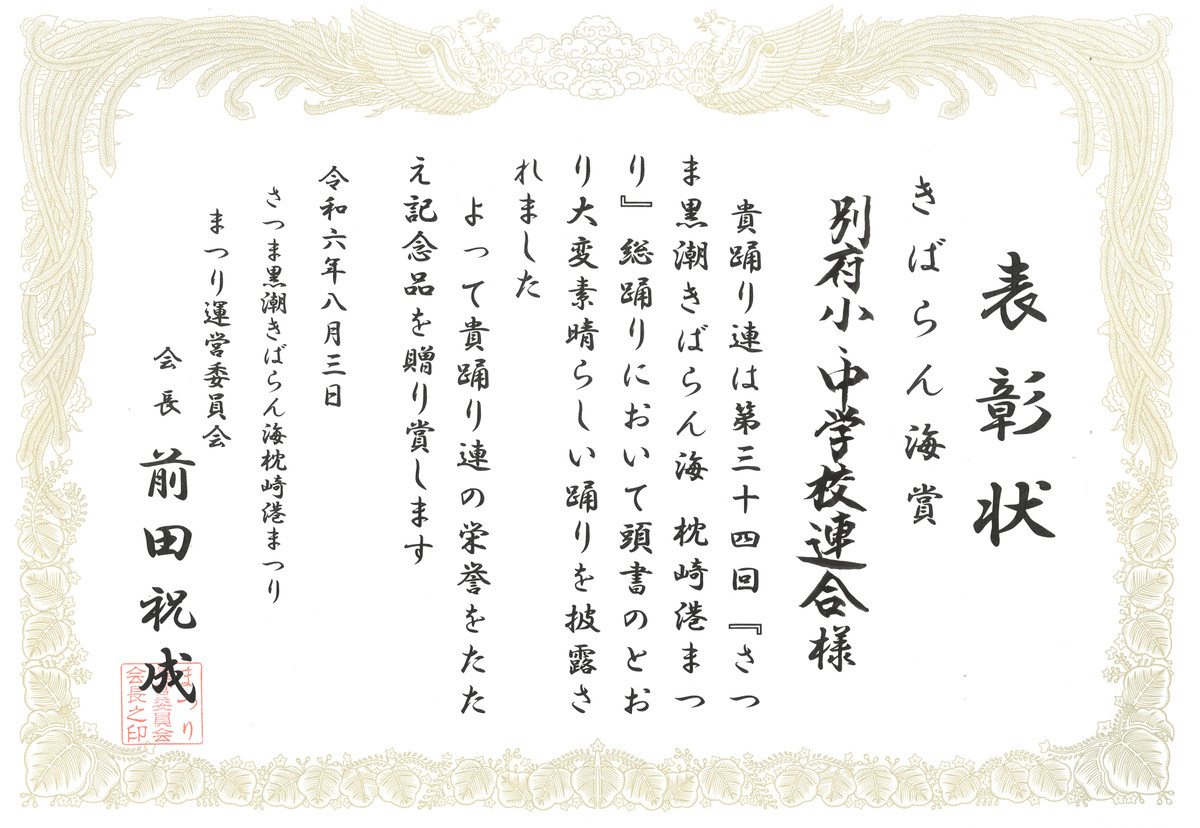 表彰状
きばらん海賞
別府小・中学校連合様
貴踊り連は第三十四回『さつ
ま黒潮きばらん海 枕崎港まつ
り』総踊りにおいて頭書のとお
り大変素晴らしい踊りを披露さ
れました
よって貴踊り連の栄誉をたた
え記念品を贈り賞します
令和六年八月三日
さつま黒潮きばらん海枕崎港まつり
まつり運営委員会
会長 前田祝成
まつり
営委員会
会長之印